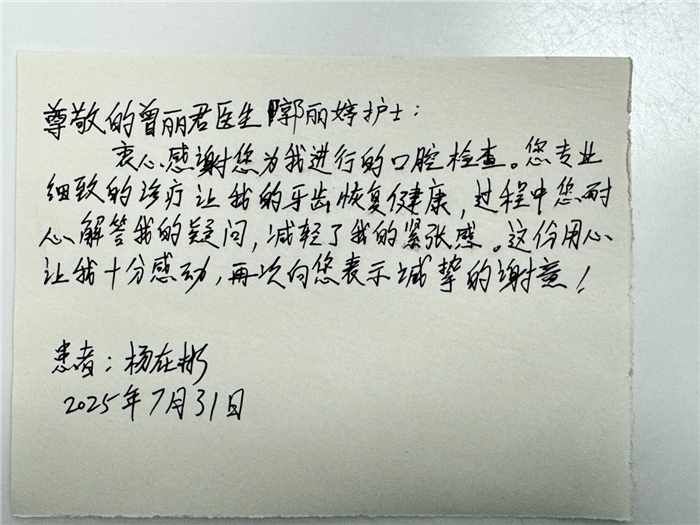 尊敬的曾丽君医生 郭丽婷护士:
衷心感谢您为我进行的口腔检查。您专业
细致的诊疗让我的牙齿恢复健康,过程中您耐
心解答我的疑问,减轻了我的紧张感。这份用心
让我十分感动,再次向您表示诚挚的谢意!
患者:杨在彬
2025年7月31日